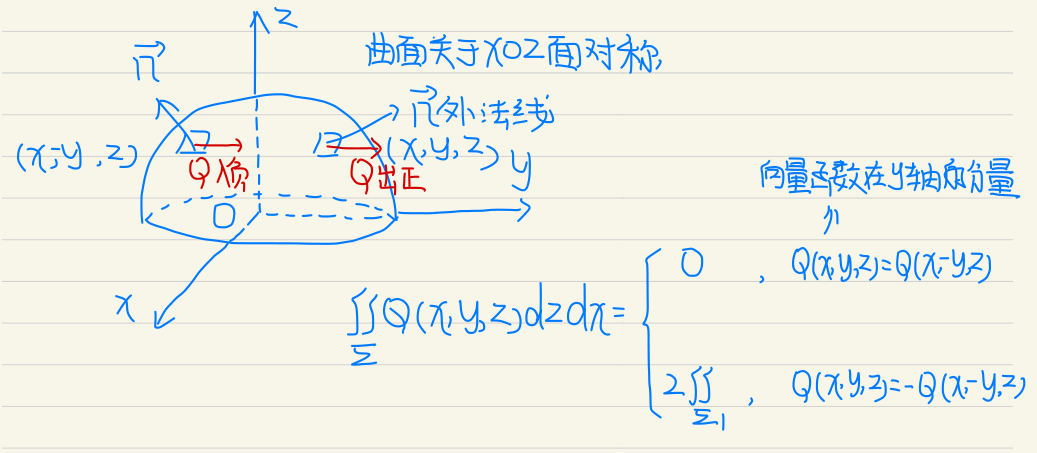 z
曲面关于xoz面对称
n⃗
n⃗外法线
(x,-y,z)
(x,y,z)
y
Q入负
Q出正
向量函数在y轴的分量
O
x
∬Q(x,y,z)dzdx=
Σ
0 , Q(x,y,z)=Q(x,-y,z)
2∬ , Q(x,y,z)=-Q(x,-y,z)
Σ1